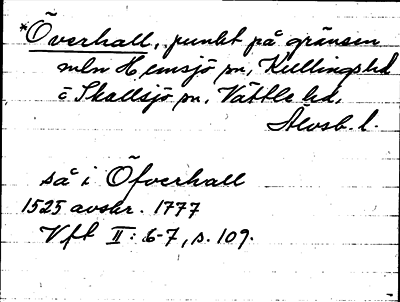 *Överhall, punkt på gränsen
mln Hemsjö sn, Kullings hd
o Skallsjö sn, Vättle hd,
Älvsb. l.
så i Öfverhall
1525 avskr. 1777
Vft II: 6-7, s. 109.